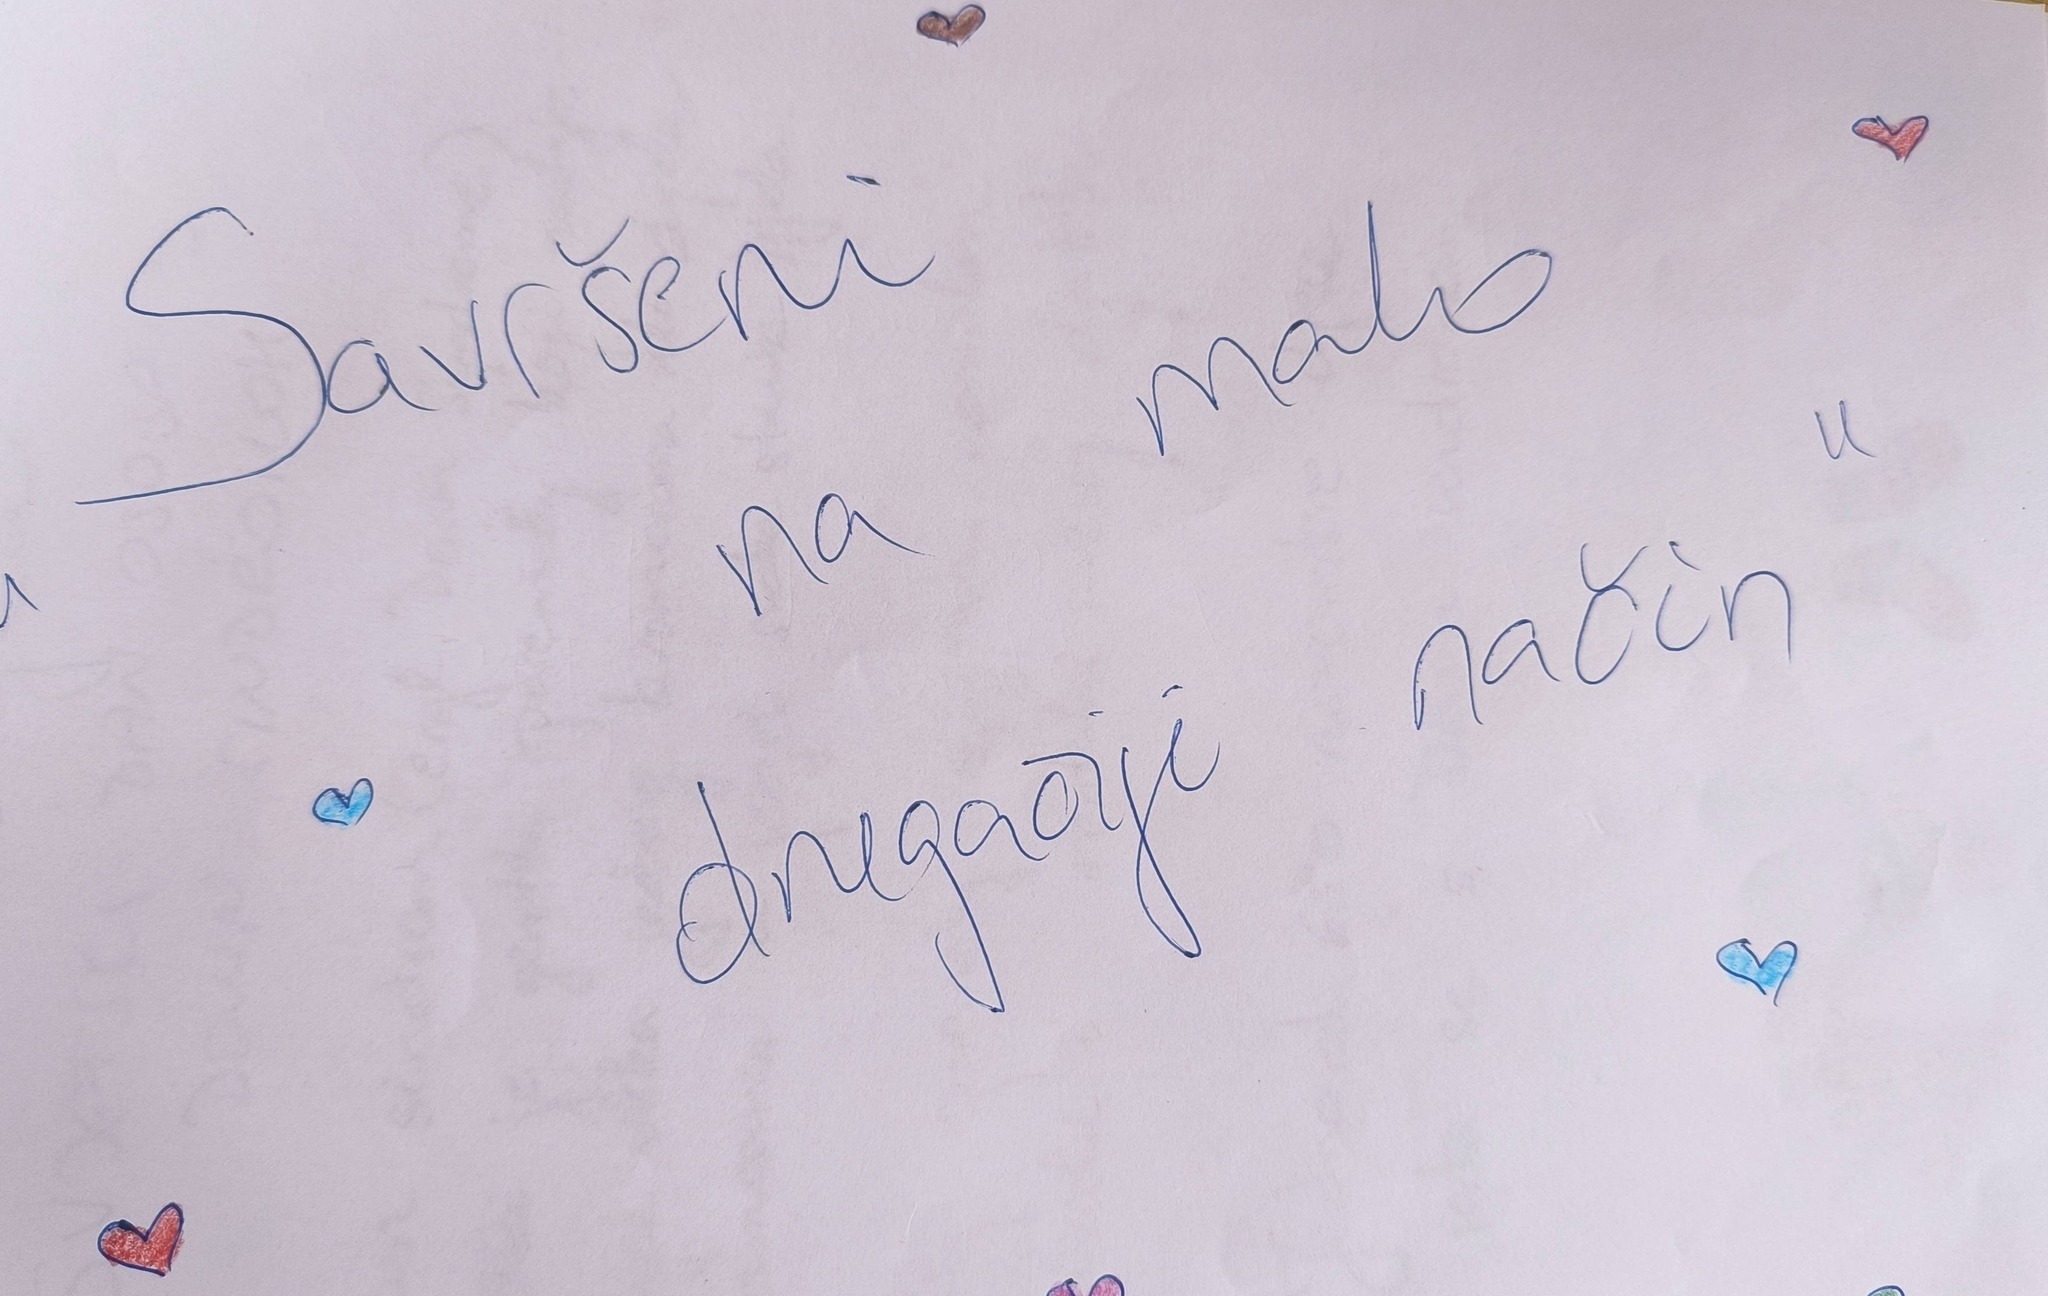 Savršeni malo
na
drugačiji način"